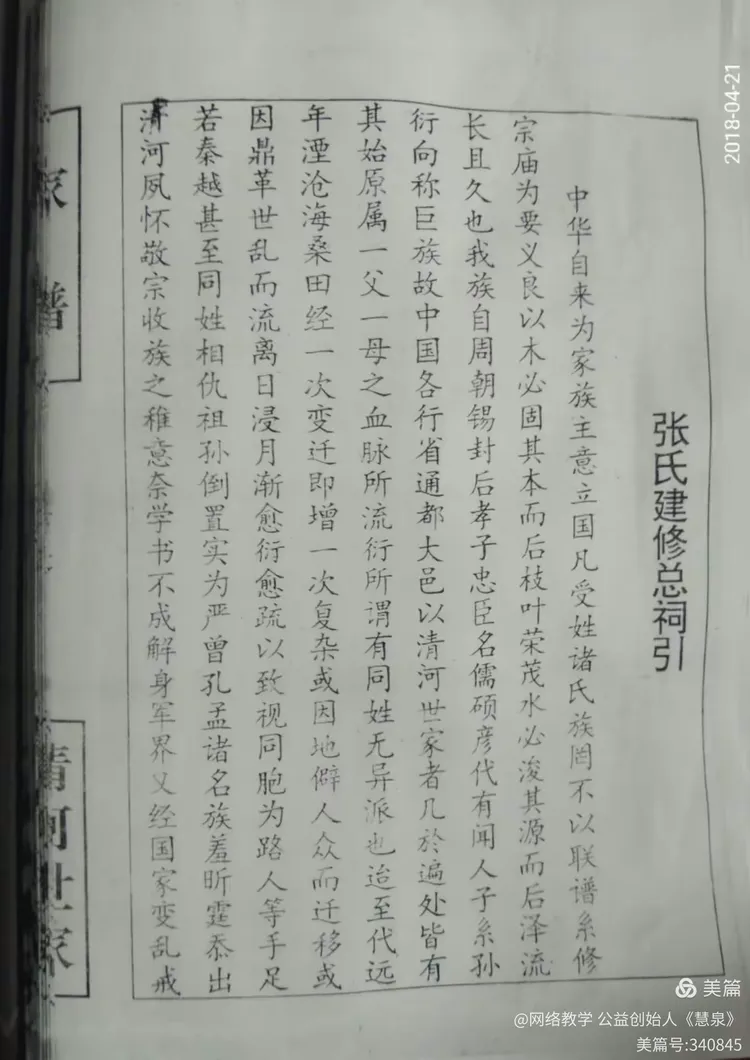 张氏建修总祠引
中华自来为家族主意立国凡受姓诸氏族罔不以联谱系修
宗庙为要义良以木必固其本而后枝叶荣茂水必浚其源而后泽流
长且久也我族自周朝锡封后孝子忠臣名儒硕彦代有闻人子系孙
衍向称巨族故中国各行省通都大邑以清河世家者几於遍处皆有
其始原属一父一母之血脉所流衍所谓有同姓无异派也迨至代远
年湮沧海桑田经一次变迁即增一次复杂或因地僻人众而迁移或
因鼎革世乱而流离日浸月渐愈衍愈疏以致视同胞为路人等手足
若秦越甚至同姓相仇祖孙倒置实为严曾孔孟诸名族羞昕霆忝出
清河夙怀敬宗收族之稚意奈学书不成解身军界又经国家变乱戒
家谱
清河世家
2018-04-21
美篇
@网络教学 公益创始人《慧泉》
美篇号:340845